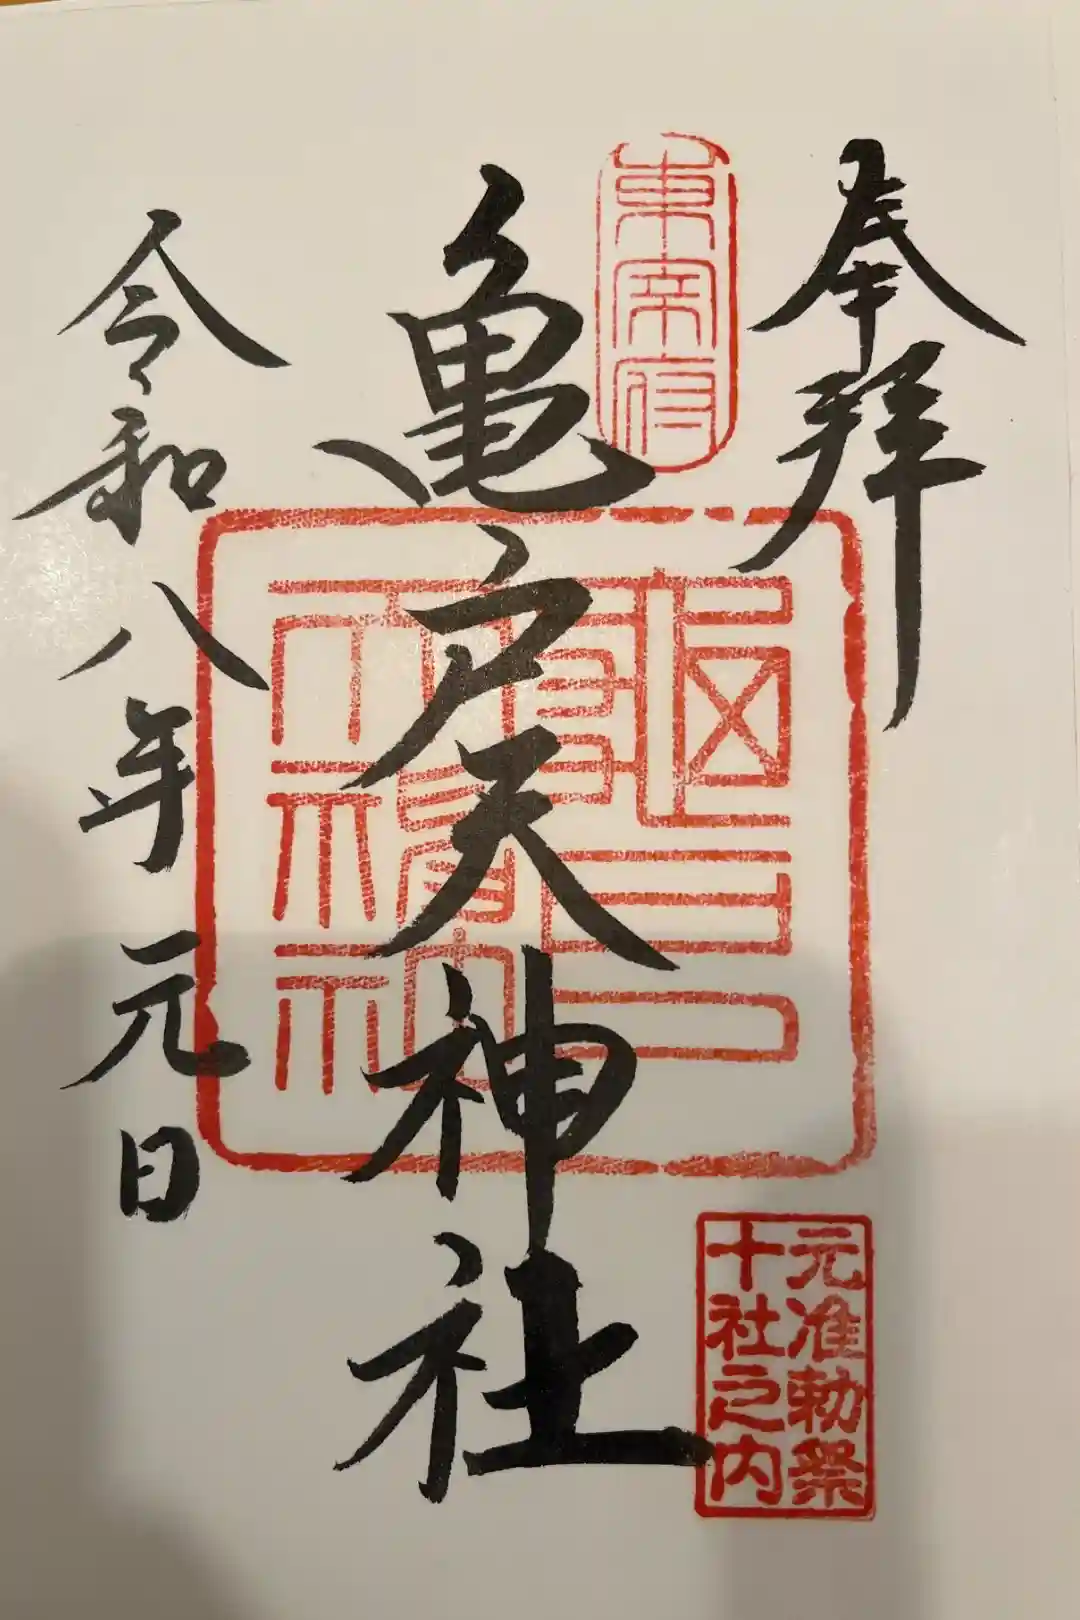 奉拝
東宰府
亀戸天神社
令和八年元日
元准勅祭
十社之内